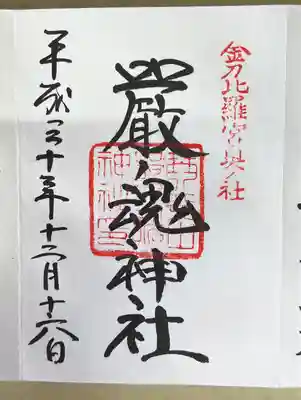 金刀比羅宮奥ノ社
嚴魂神社
平成三十年十二月十六日